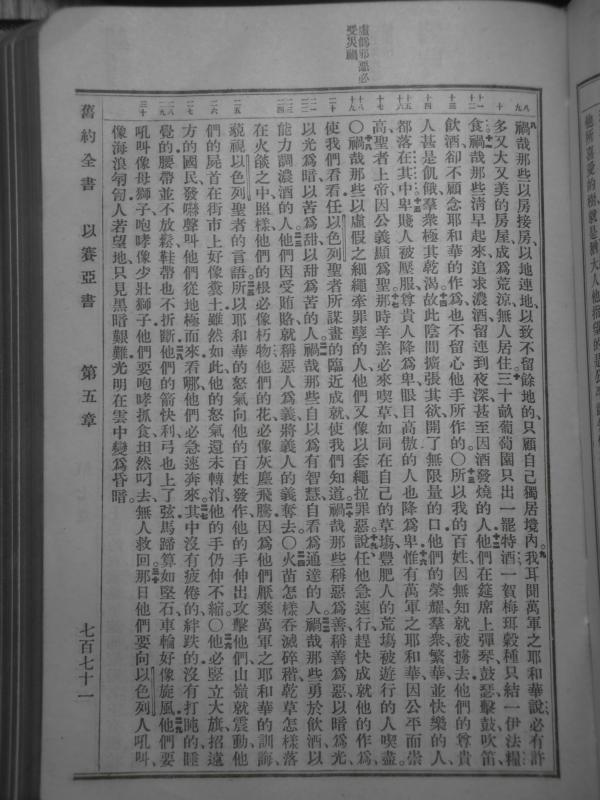 虛僞邪惡必
受災禍
禍哉、那些以房接房、以地連地、以致不留餘地的、只顧自己獨居境內。我耳聞萬軍之耶和華說、必有許
多又大又美的房屋、成爲荒涼、無人居住。三十畝葡萄園只出一罷特酒、一賀梅珥穀種只結一伊法糧
食。禍哉、那些清早起來、追求濃酒、留連到夜深、甚至因酒發燒的人。他們在筵席上彈琴、鼓瑟、擊鼓、吹笛、
飲酒、卻不顧念耶和華的作爲、也不留心他手所作的。○所以我的百姓、因無知就被擄去、他們的尊貴
人甚是飢餓、羣衆極其乾渴。故此陰間擴張其欲、開了無限量的口、他們的榮耀、羣衆、繁華、並快樂的人、
都落在其中。卑賤人被壓服、尊貴人降爲卑、眼目高傲的人也降爲卑。惟有萬軍之耶和華、因公平而崇
高、聖者上帝、因公義顯爲聖。那時羊羔必來喫草、如同在自己的草場、豐肥人的荒場被遊行的人喫盡。
○禍哉、那些以虛假之細繩牽罪孽的人、他們又像以套繩拉罪惡。說、任他急速行、趕快成就他的作爲、
使我們看看、任以色列聖者所謀畫的臨近成就、使我們知道。禍哉、那些稱惡爲善、稱善爲惡、以暗爲光、
以光爲暗、以苦爲甜、以甜爲苦的人。禍哉、那些自以爲有智慧、自看爲通達的人。禍哉、那些勇於飲酒、以
能力調濃酒的人。他們因受賄賂、就稱惡人爲義、將義人的義奪去。○火苗怎樣吞滅碎稭、乾草怎樣落
在火燄之中、照樣、他們的根必像朽物、他們的花、必像灰塵飛騰、因爲他們厭棄萬軍之耶和華的訓誨、
藐視以色列聖者的言語。所以耶和華的怒氣向他的百姓發作、他的手伸出攻擊他們、山嶺就震動、他
們的屍首在街市上好像糞土、雖然如此、他的怒氣還未轉消、他的手仍伸不縮。○他必豎立大旗、招遠
方的國民、發嘶聲叫他們從地極而來、看哪、他們必急速奔來。其中沒有疲倦的、絆跌的、沒有打盹的、睡
覺的、腰帶並不放鬆、鞋帶也不折斷。他們的箭快利、弓也上了弦、馬蹄算如堅石、車輪好像旋風。他們要
吼叫像母獅子、咆哮像少壯獅子、他們要咆哮抓食、坦然叼去、無人救回。那日他們要向以色列人吼叫、
像海浪匉訇、人若望地、只見黑暗艱難、光明在雲中變爲昏暗。
舊約全書　以賽亞書　第五章　七百七十一